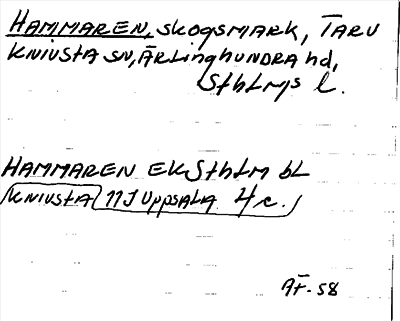 HAMMAREN, skogsmark, TARV
KNIVSTA SN, ÄRLinghUNDRA hd,
SthLMs l.
HAMMAREN EK SthLM bL
KNIVSTA 11 I UppsALA 4 c.
ÄF-58